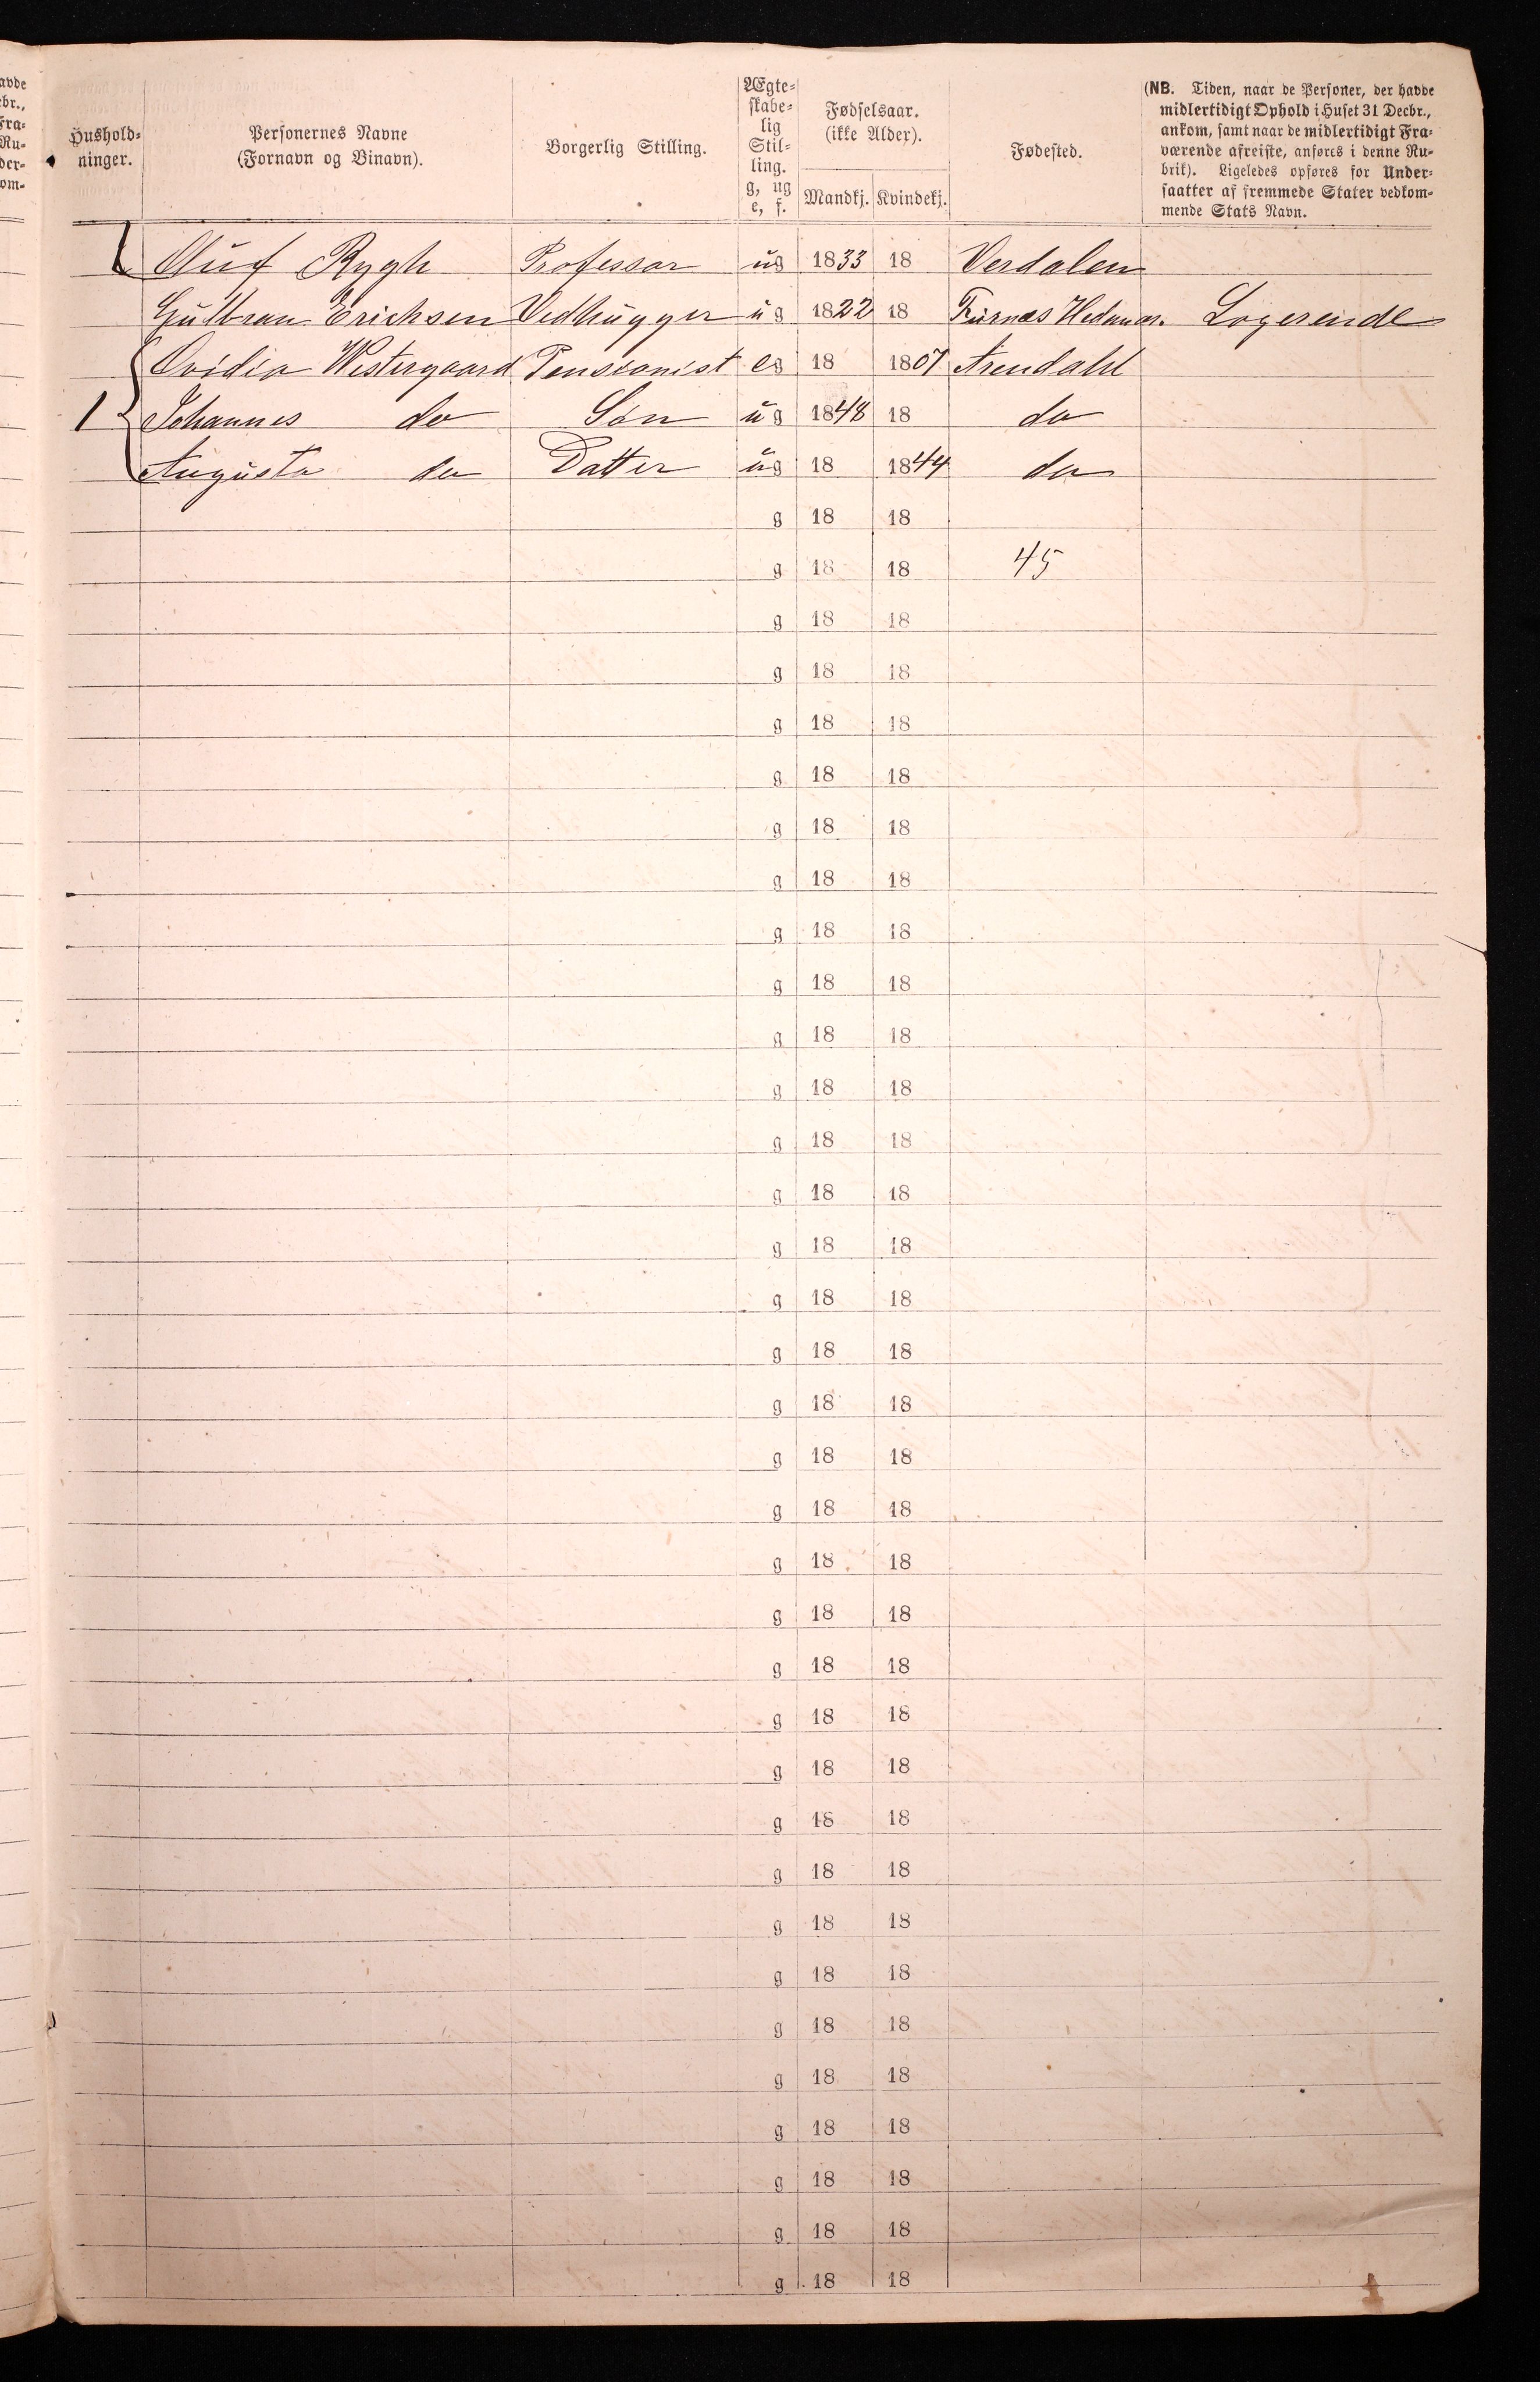 avde
cbr.,
Fra-
Ru-
der-
om-
Hushold-
ninger.
Personernes Navne
(Fornavn og Binavn).
Borgerlig Stilling.
Ægte-
skabe-
lig
Stil-
ling.
g, ug
e, f.
Fødselsaar.
(ikke Alder).
Mandkj. Kvindekj.
Fødested.
(NB. Tiden, naar de Personer, der havde
midlertidigt Ophold i Huset 31 Decbr.,
ankom, samt naar de midlertidigt Fra-
værende afreiste, anføres i denne Ru-
brik). Ligeledes opføres for Under-
saatter af fremmede Stater vedkom-
mende Stats Navn.
Oluf Rygh Professor ug 1833 18 Verdalen
Gulbran Erichsen Vedhugger ug 1822 18 Furnæs Hedmar. Logerende
Ovidia Westergaard Pensionist eg 18 1807 Arendahl
1 Johannes do Søn ug 1848 18 do
Augusta do Datter ug 18 1844 do
g 18 18
g 18 18 45
g 18 18
g 18 18
g 18 18
g 18 18
g 18 18
g 18 18
g 18 18
g 18 18
g 18 18
g 18 18
g 18 18
g 18 18
g 18 18
g 18 18
g 18 18
g 18 18
g 18 18
g 18 18
g 18 18
g 18 18
g 18 18
g 18 18
g 18 18
g 18 18
g 18 18
g 18 18
g 18 18
g 18 18
g 18 18
g 18 18
g 18 18
g 18 18
g 18 18